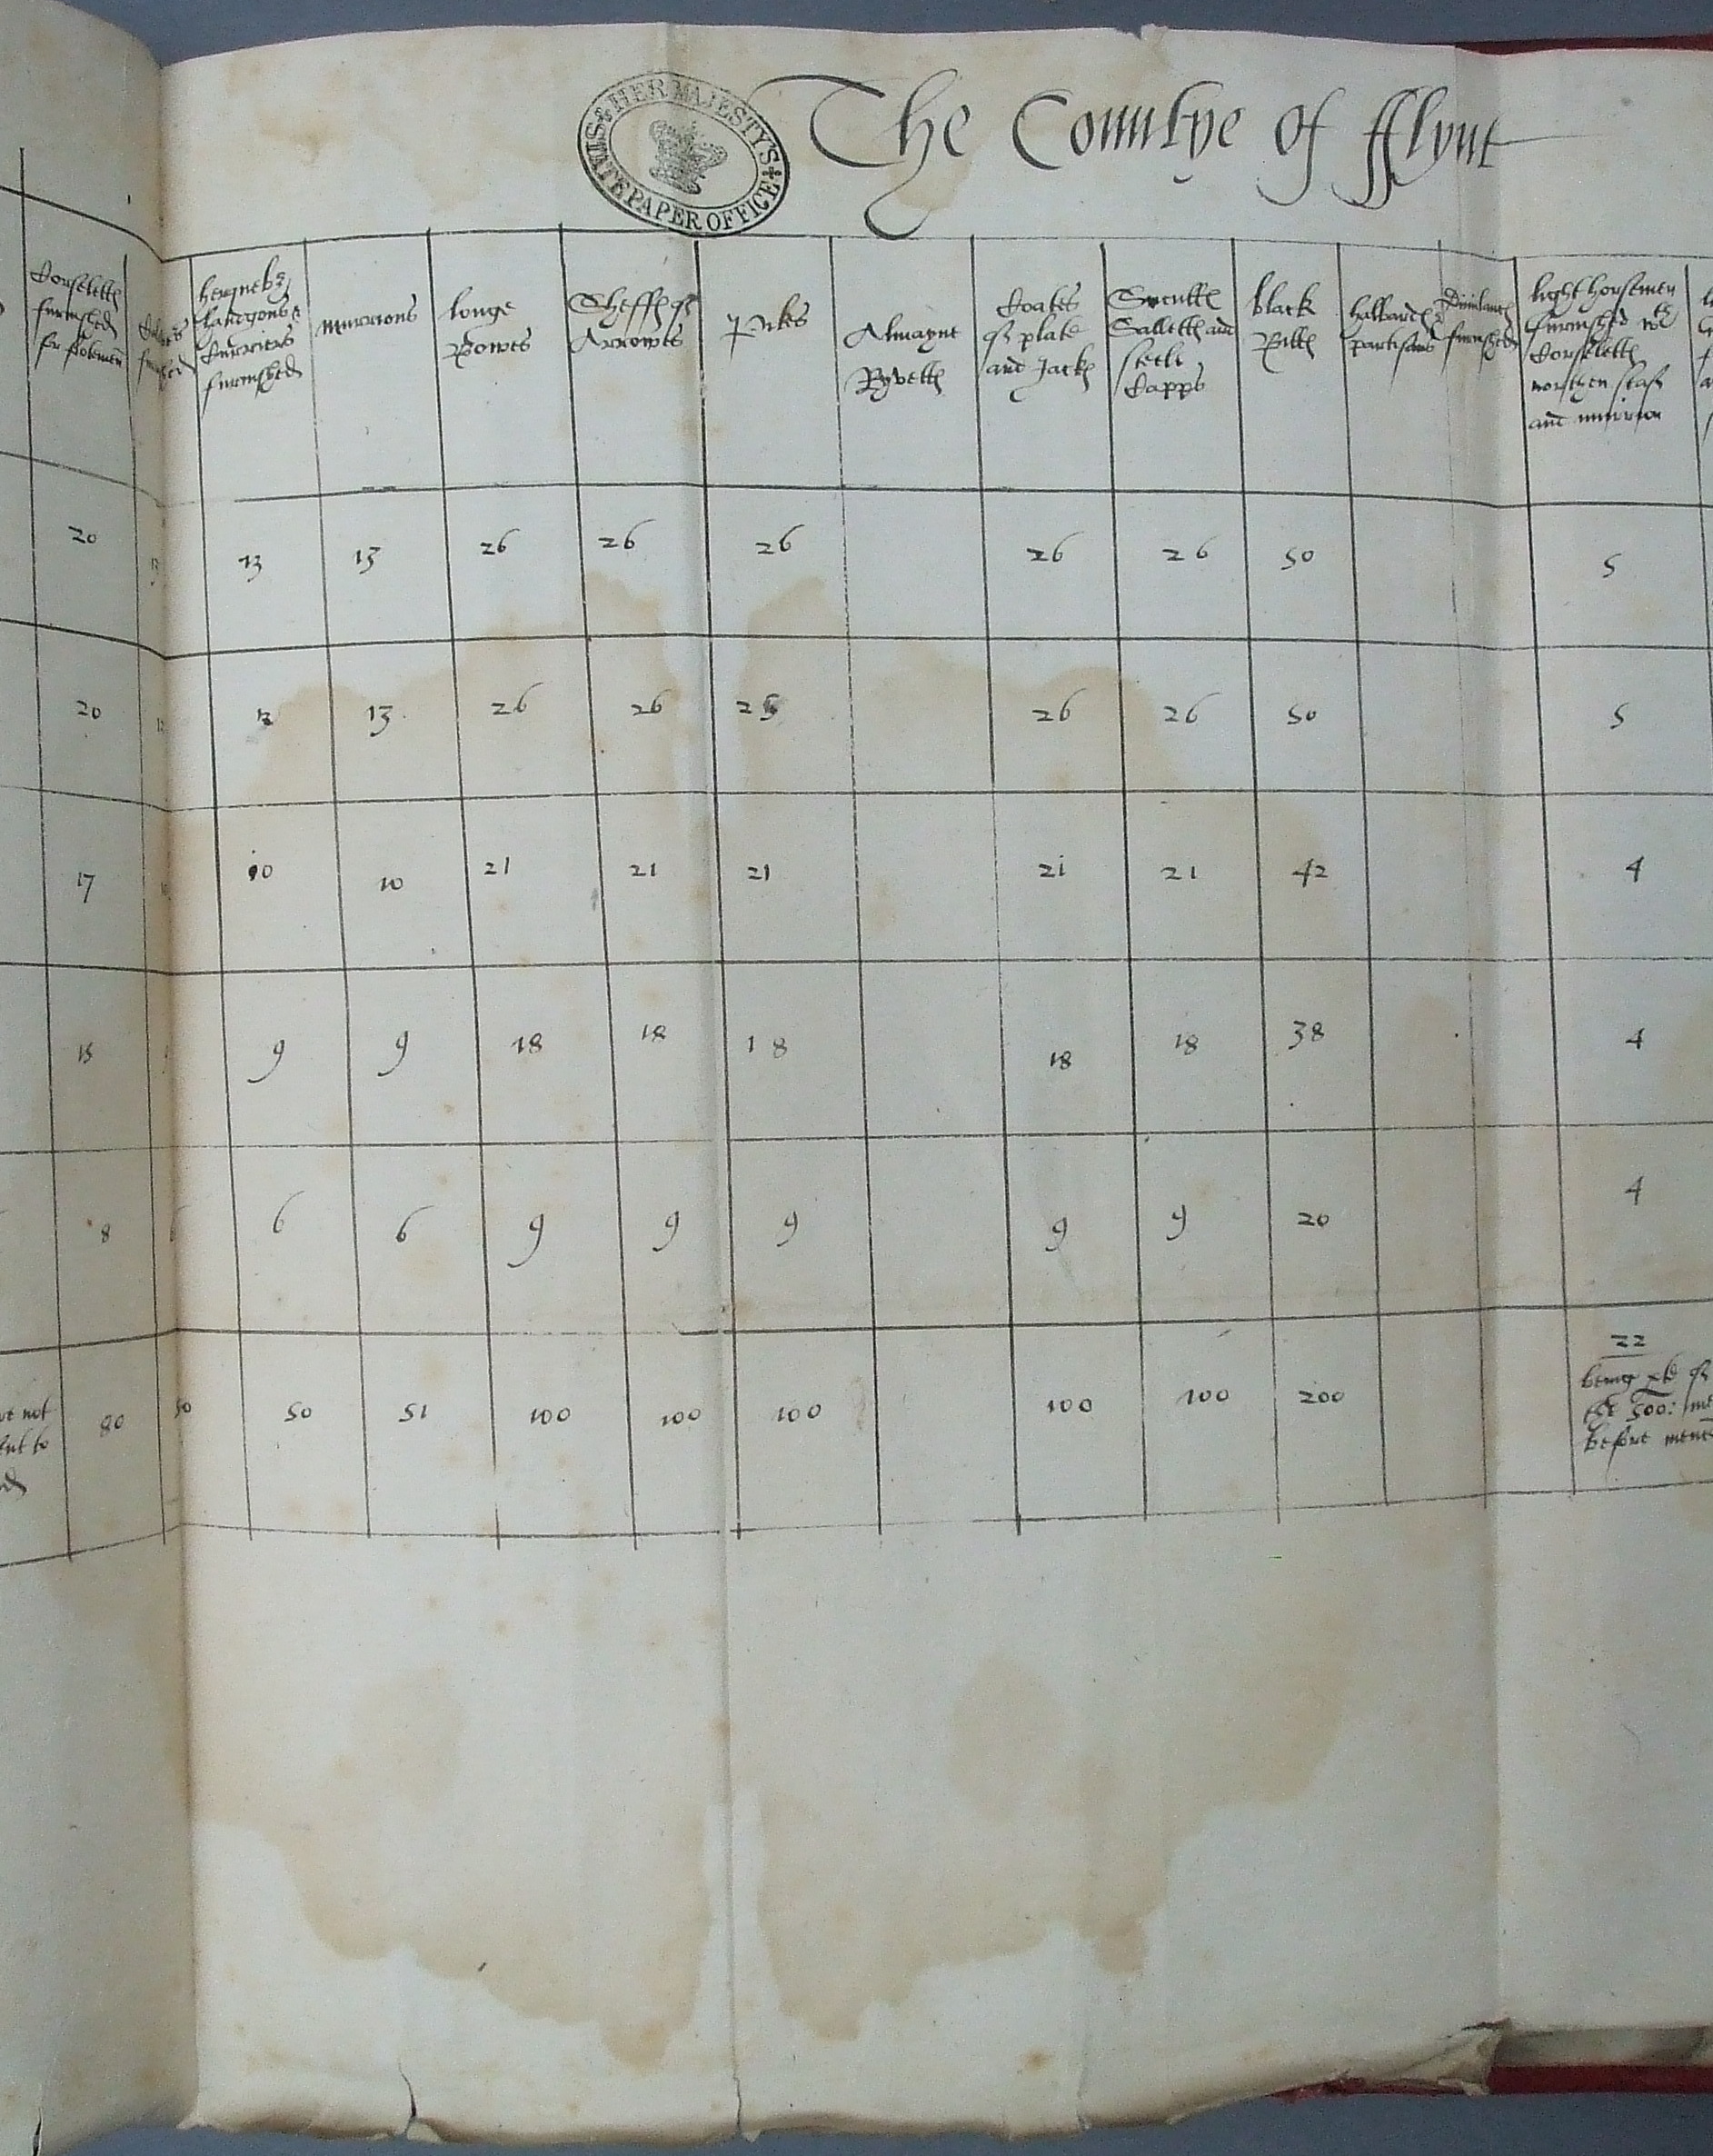 HER MAJESTY'S STATE PAPER OFFICE
The Countye of Fflynt
Corselettes furnished
Calivers furnished
hargonns & Curriers furnished
Murrions
longe Bowes
Sheffes of Arrowes
Pikes
Almayne Ryvettes
Coates of plate and Jackes
Scculles Sallettes and steele Capps
black Billes
halbardes partisans
Dimilances furnished
light horsemen furnished wth Corselettes northen staf and murrion
20 13 13 13 26 26 26 26 26 50 5
20 13 26 26 26 26 50 5
17 10 10 21 21 21 21 21 42 4
15 9 9 18 18 18 18 18 38 4
8 6 6 6 9 9 9 9 9 20 4
80 50 50 51 100 100 100 100 100 200 22
not
to
being of
the 500:
before